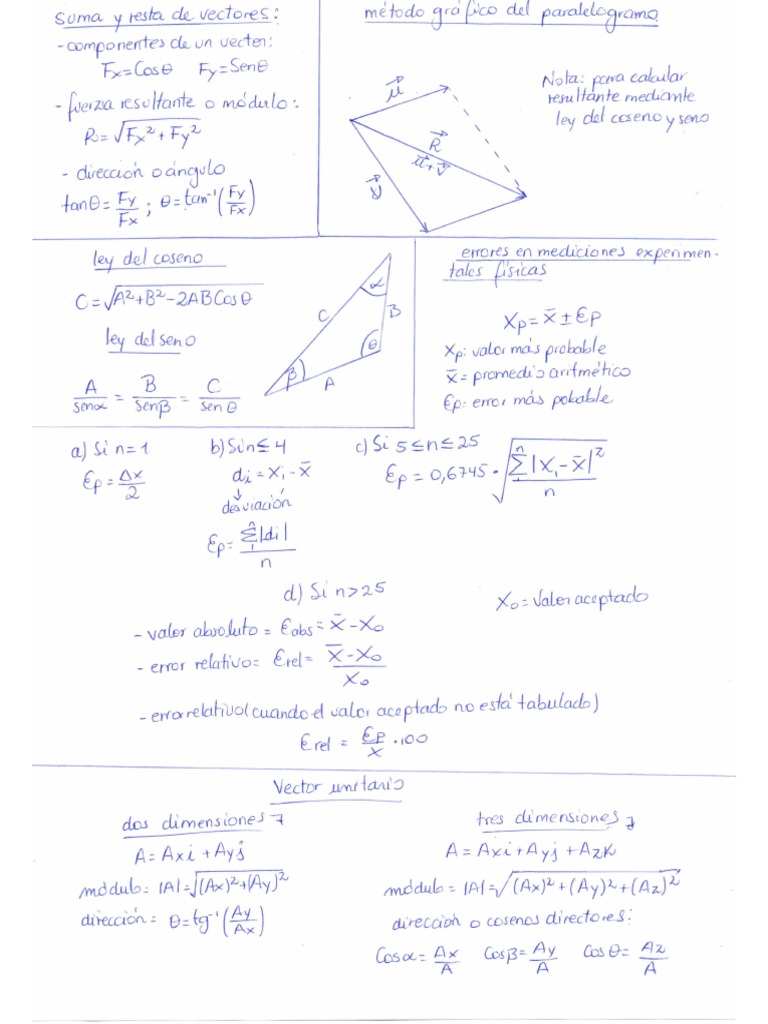 Suma y resta de vectores:
-componentes de un vecter:
Fx=Cosθ Fy=Senθ
-fuerzia resultante o módulo:
R=√(Fx²+Fy²)
- dirección o ángulo
tanθ=Fy/Fx; θ=tan⁻¹(Fy/Fx)
método gráfico del paralelogramo
Nota: para calcular
resultante mediante
ley del coseno y seno
u⃗
R⃗
u⃗+v⃗
v⃗
ley del coseno
C=√(A²+B²-2ABCosθ)
ley del seno
A/senα = B/senβ = C/senθ
α
C
B
θ
β
A
errores en mediciones experimen-
tales físicas
Xp=x̄±Ɛp
Xp: valor más probable
x̄= promedio aritmético
Ɛp: error más pobable
a) Si n=1
Ɛp=Δx/2
b) Si n≤4
di=Xi-x̄
↓
desviación
Ɛp=Σ₁ⁿ|di|/n
c) Si 5≤n≤25
Ɛp=0,6745·√(Σ₁ⁿ|Xi-x̄|²/n)
d) Si n>25
X₀=Valor aceptado
- valor absoluto= Ɛabs= x̄-X₀
- error relativo= Ɛrel= (x̄-X₀)/X₀
- error relativo(cuando el valor aceptado no está tabulado)
Ɛrel = Ɛp/x·100
Vector unitario
dos dimensiones
A=Axi+Ayj
módulo=|A|=√((Ax)²+(Ay)²)
dirección= θ=tg⁻¹(Ay/Ax)
tres dimensiones
A=Axi+Ayj+Azk
módulo=|A|=√((Ax)²+(Ay)²+(Az)²)
dirección o cosenos directores:
Cosα=Ax/A Cosβ=Ay/A Cosθ=Az/A